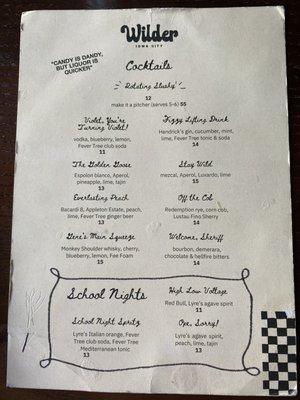 Wilder
IOWA CITY
"CANDY IS DANDY,
BUT LIQUOR IS
QUICKER"
Cocktails
Rotating Slushy
12
make it a pitcher (serves 5-6) 55
Violet, You're
Turning Violet!
vodka, blueberry, lemon,
Fever Tree club soda
11
Fizzy Lifting Drink
Hendrick's gin, cucumber, mint,
lime, Fever Tree tonic & soda
14
The Golden Goose
Espolon blanco, Aperol,
pineapple, lime, tajin
13
Stay Wild
mezcal, Aperol, Luxardo, lime
15
Everlasting Peach
Bacardi 8, Appleton Estate, peach,
lime, Fever Tree ginger beer
13
Off the Cob
Redemption rye, corn cob,
Lustau Fino Sherry
14
Gene's Main Squeeze
Monkey Shoulder whisky, cherry,
blueberry, lemon, Fee Foam
15
Welcome, Sheriff
bourbon, demerara,
chocolate & hellfire bitters
14
School Nights
High Low Voltage
Red Bull, Lyre's agave spirit
11
School Night Spritz
Lyre's Italian orange, Fever
Tree club soda, Fever Tree
Mediterranean tonic
13
Ope, Sorry!
Lyre's agave spirit,
peach, lime, tajin
13